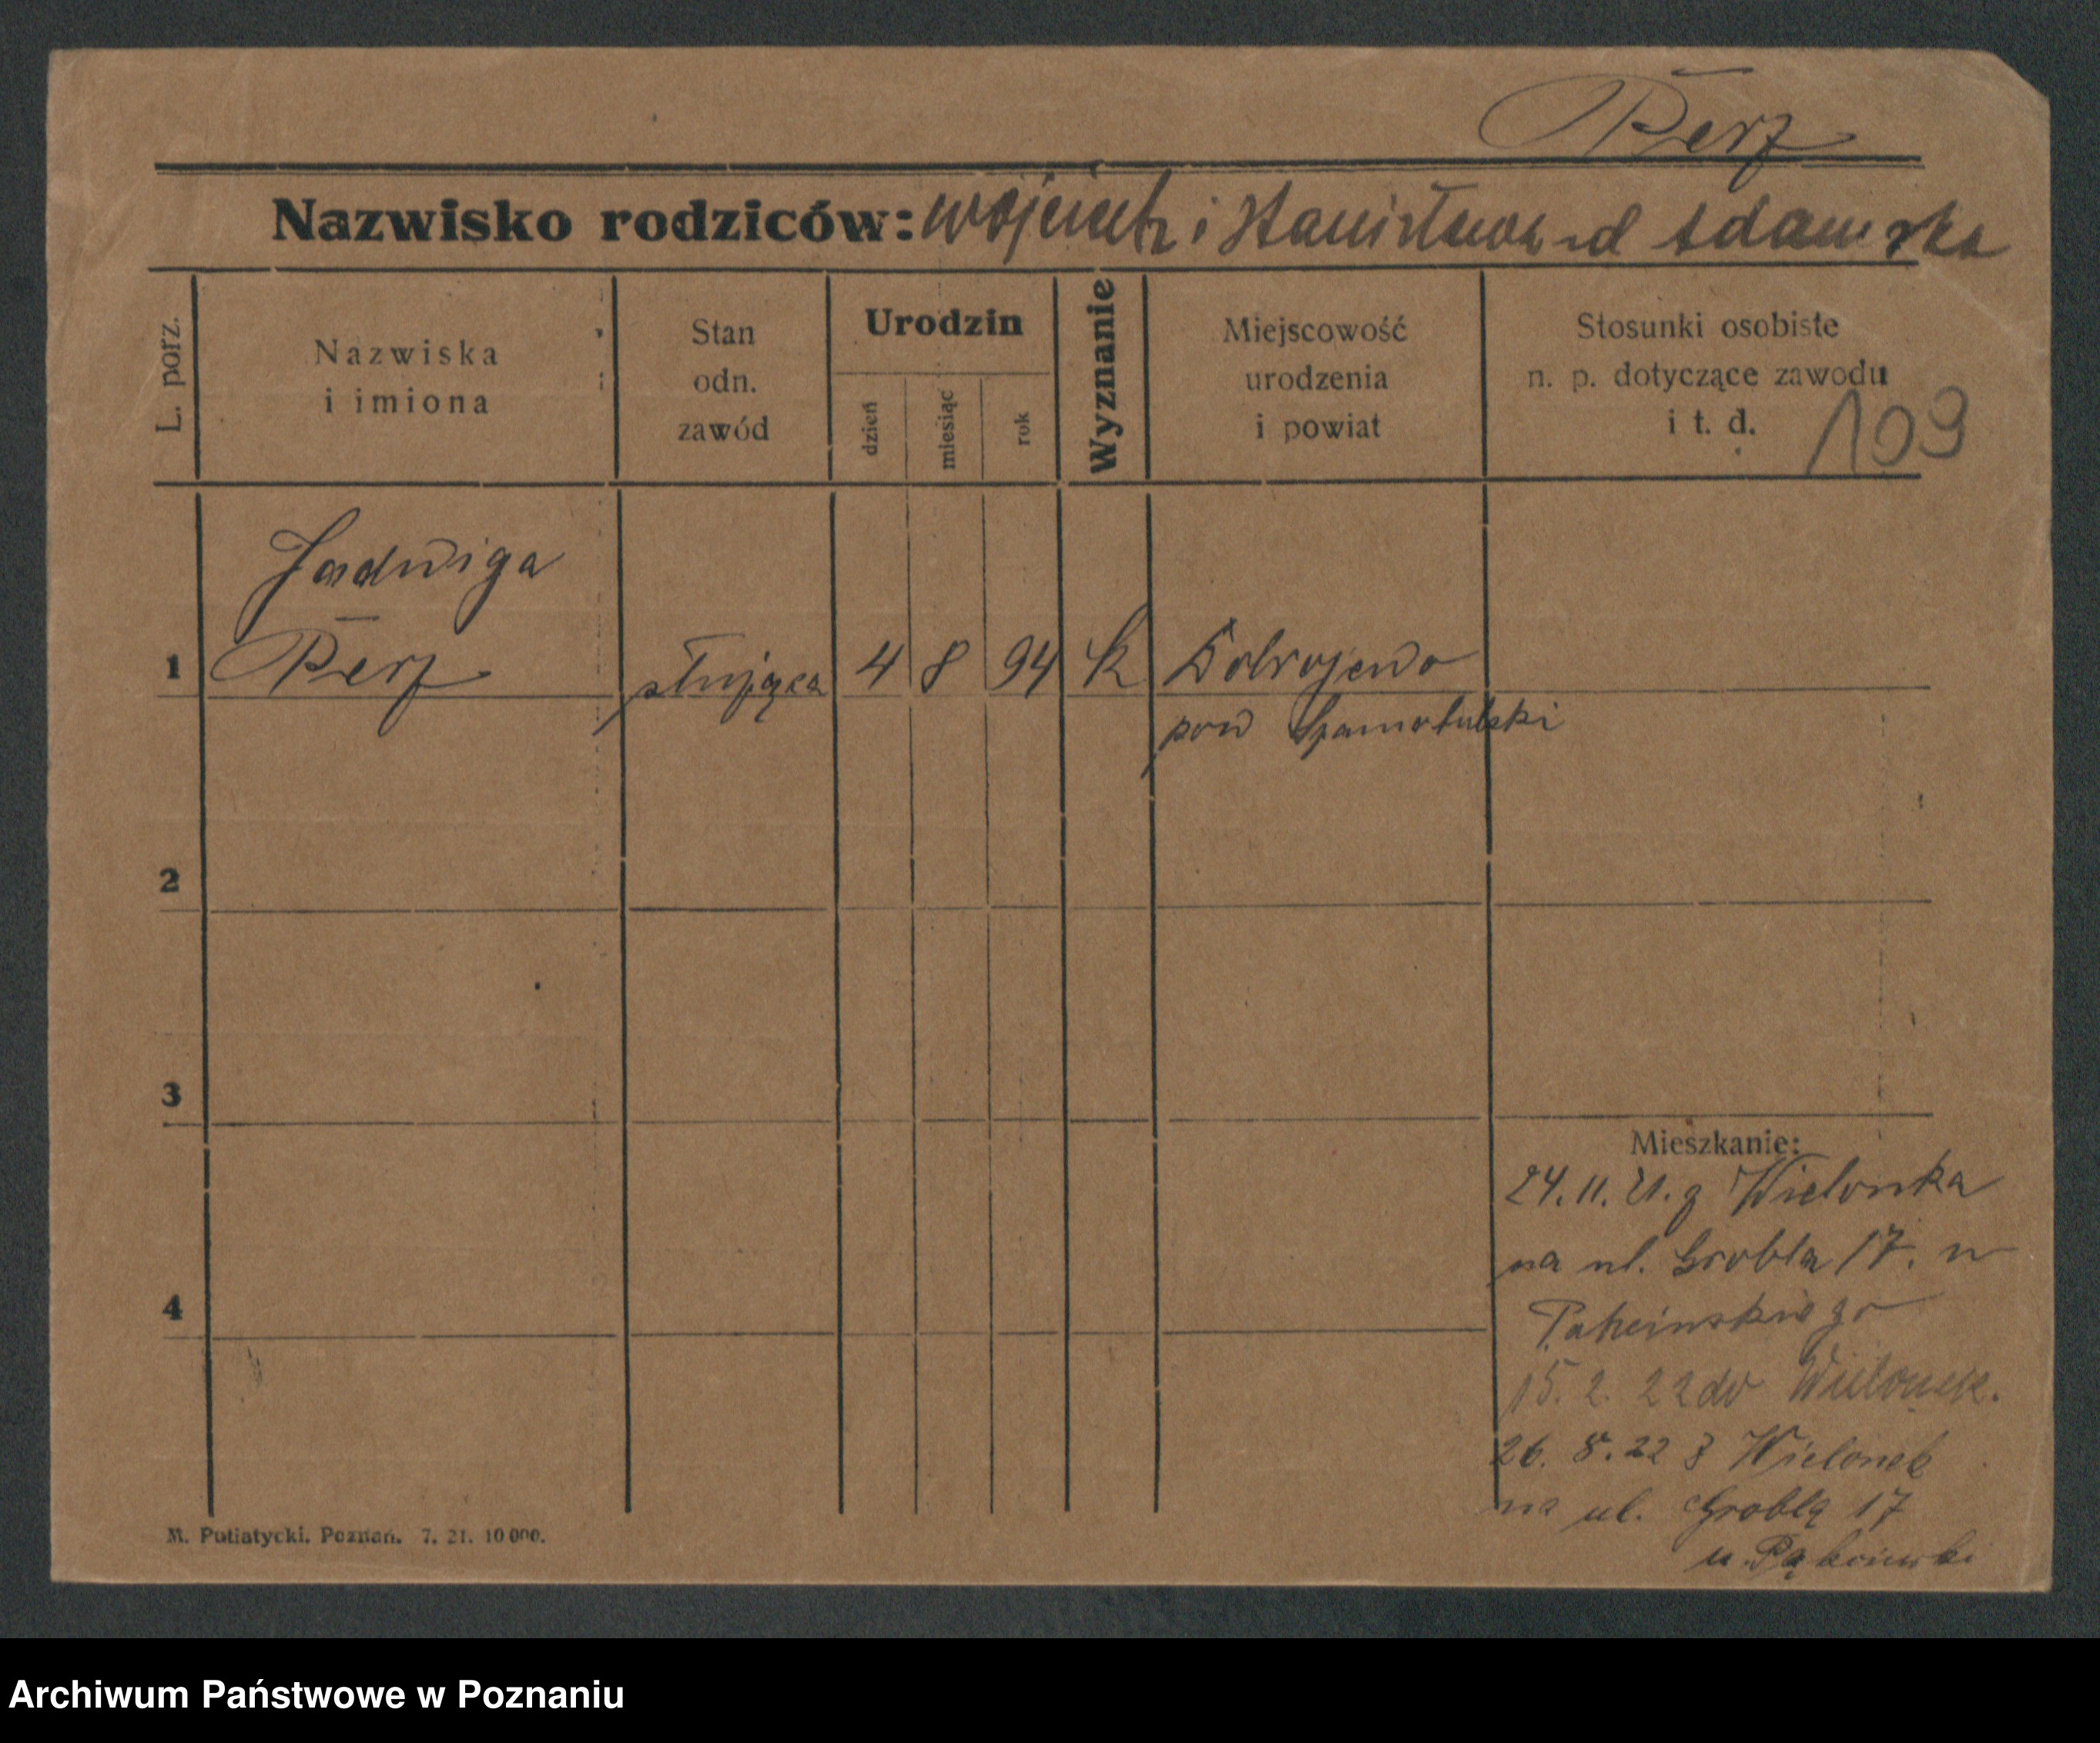 Perz
Nazwisko rodziców: Wojciech i Stanisława rd Adamska
L. porz.
Nazwiska
i imiona
Stan
odn.
zawód
Urodzin
dzień
miesiąc
rok
Wyznanie
Miejscowość
urodzenia
i powiat
Stosunki osobiste
n. p. dotyczące zawodu
i t. d.
109
Jadwiga
1 Perz służąca 4 8 94 k Dobrojewo
pow Szamotulski
2
3
4
Mieszkanie:
24. 11. 21. z Wielonka
na ul. Grobla 17. u
15. 2. 22 do Wielonek.
26. 8. 22 z Wielonek
na ul. Groblą 17
u.
M. Putiatycki. Poznań. 7. 21. 10 000.
Archiwum Państwowe w Poznaniu